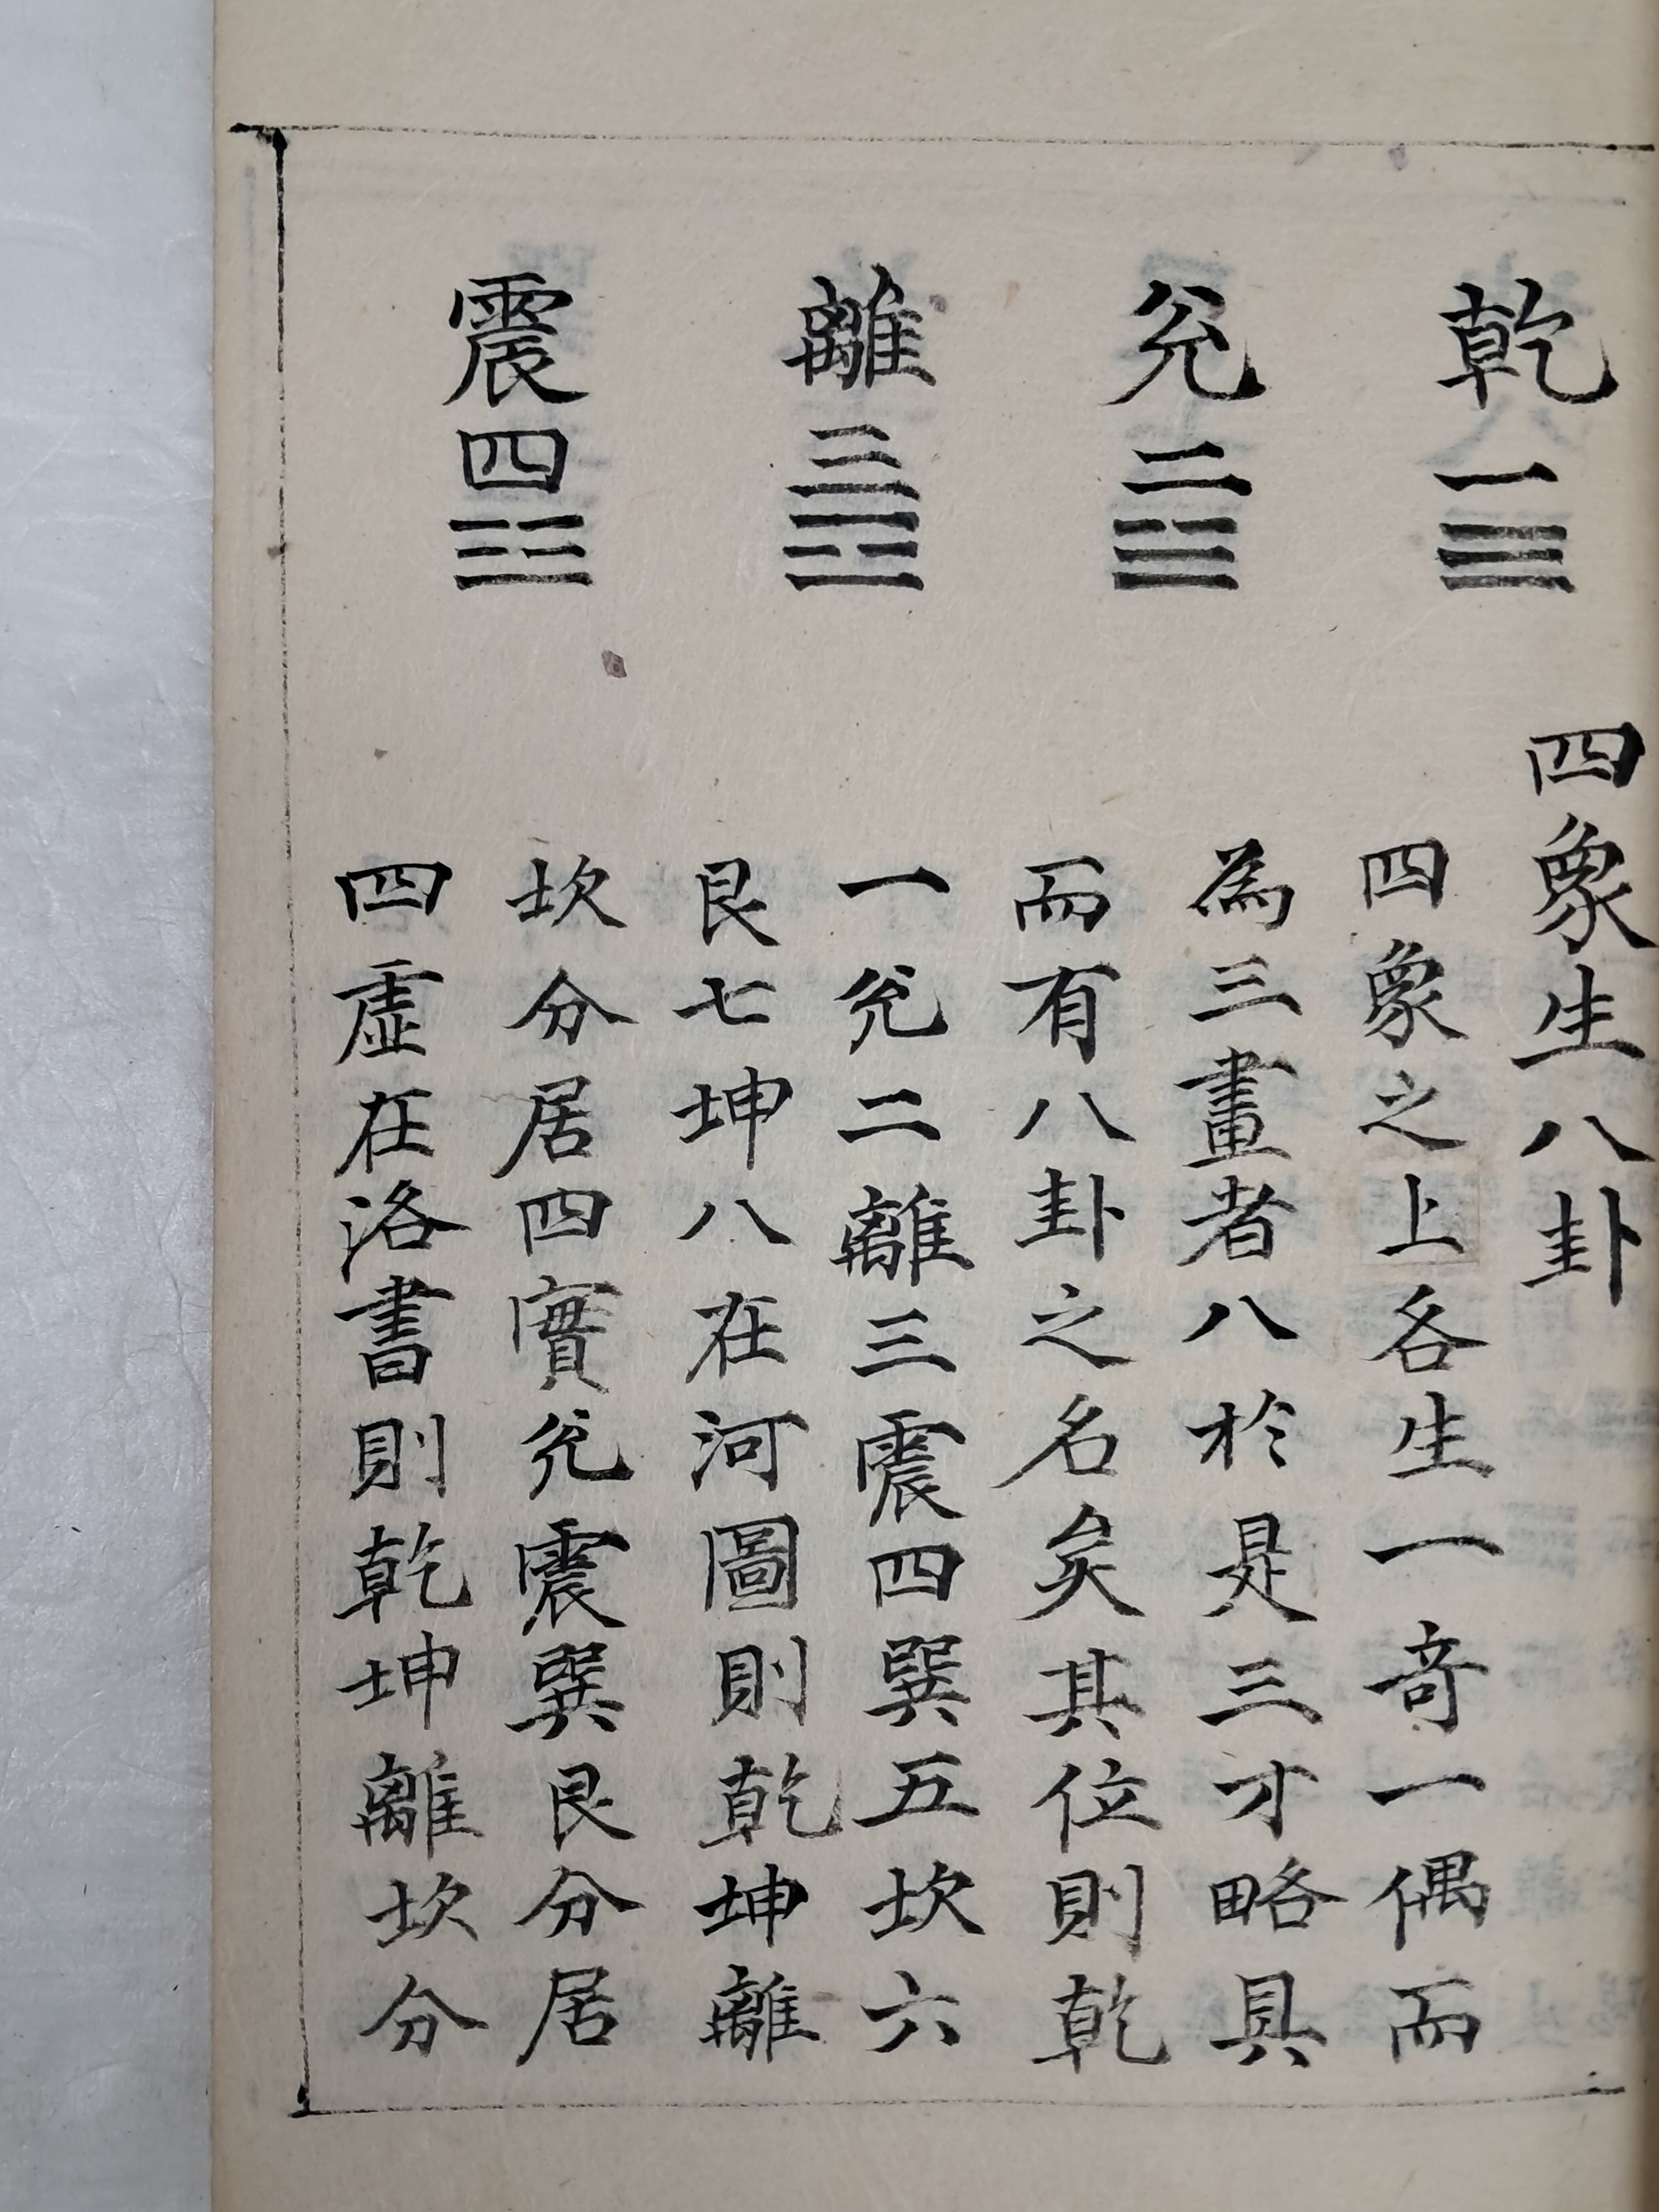 乾一☰
兌二☱
離三☲
震四☳
四象生八卦
四象之上各生一奇一偶而
為三畫者八於是三才略具
而有八卦之名矣其位則乾
一兌二離三震四巽五坎六
艮七坤八在河圖則乾坤離
坎分居四實兌震巽艮分居
四虛在洛書則乾坤離坎分